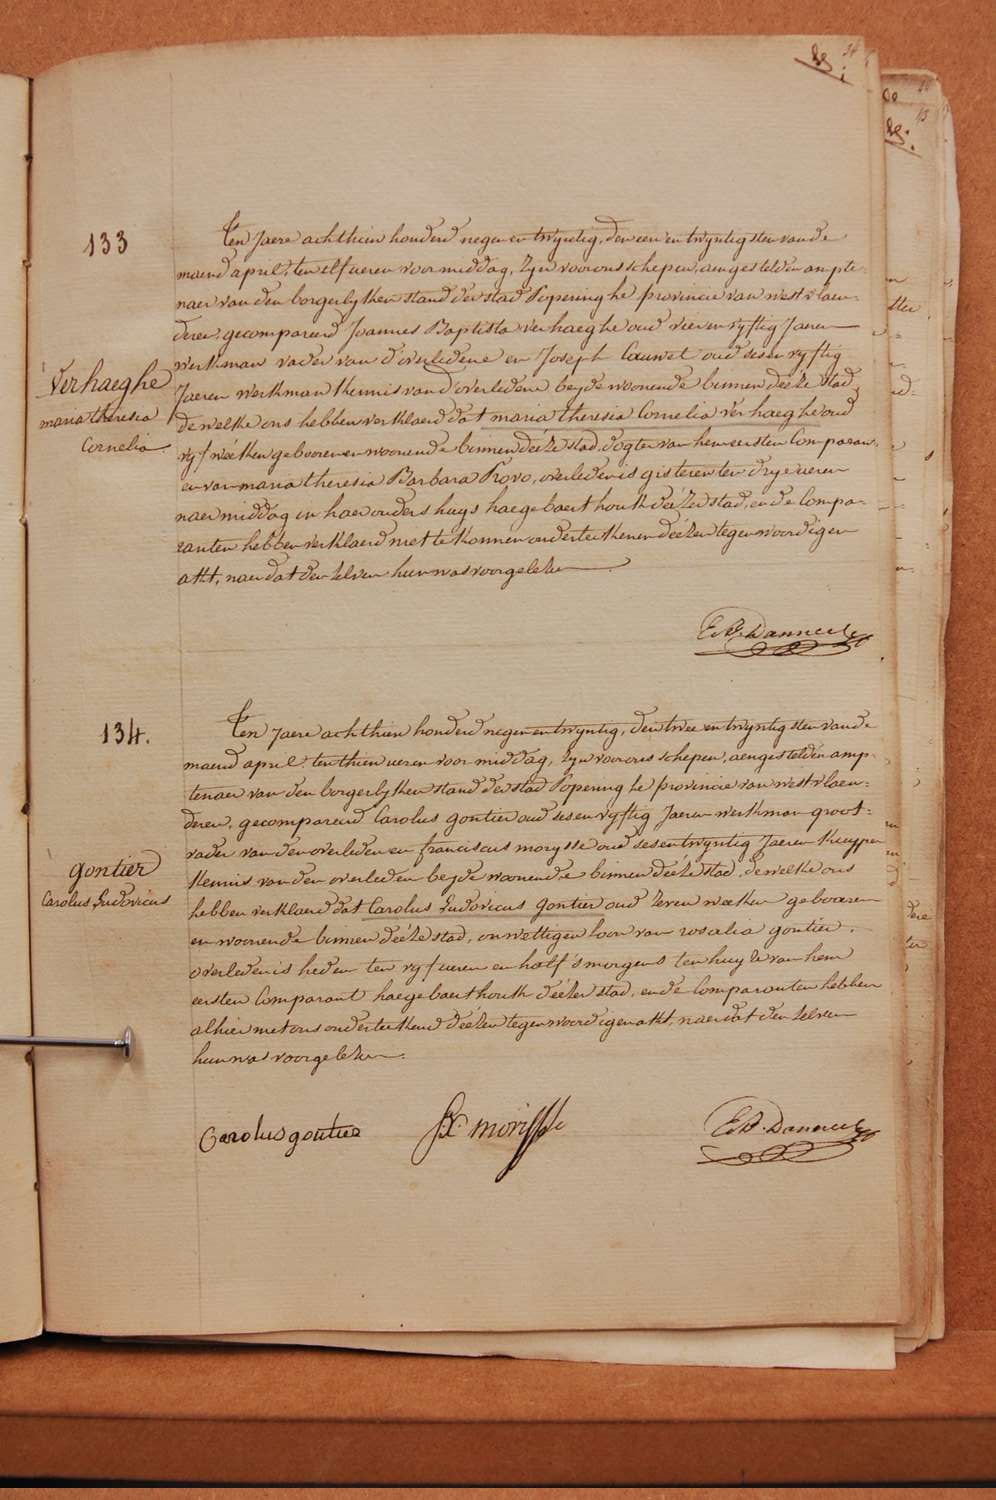 34
133
Ten Jaere achthien honderd negen en twyntig, den een en twyntigsten van de
maend april, ten elf ueren voormiddag, Zyn voor ons schepen, aengestelden ampte-
naer van den borgerlyken stand der stad Poperinghe provincie van westvlaen-
deren, gecompareerd Joannes Baptista verhaeghe oud vier en vyftig Jaeren
werkman vader van d'overledene en Joseph Cauwet oud sesen vyftig
Jaeren werkman kennis van d'overledene beyde woonende binnen deéze stad,
de welke ons hebben verklaerd dat maria theresia Cornelia verhaeghe oud
vyf wéeken gebooren en woonende binnen deéze stad, dogter van hem eersten Comparant,
en van maria theresia Barbara Rovo, overleden is gisteren ten drye ueren
naermiddag in haer ouders huys haegebaerthouk deézer stad, en de Compa-
ranten hebben verklaerd niet te konnen onderteekenen deézen tegenwoordigen
akt, naer dat den zelven hun was voorgelezen.
Verhaeghe
maria theresia
Cornelia
E. B. Danneel
134.
Ten Jaere achthien honderd negen en twyntig, den twee en twyntigsten van de
maend april, ten thien ueren voormiddag, Zyn voor ons schepen, aengestelden amp-
tenaer van den borgerlyken stand der stad Poperinghe provincie van westvlaen-
deren, gecompareerd Carolus gontier oud sesen vyftig Jaeren werkman groot-
vader van den overleden en franciscus morysse oud sesentwyntig Jaeren kuyper
kennis van den overleden beyde woonende binnen deéze stad, de welke ons
hebben verklaerd dat Carolus Ludovicus gontier oud zeven weeken gebooren
en woonende binnen deéze stad, onwettigen soon van rosalia gontier,
overleden is heden ten vyf ueren en half 's morgens ten huyze van hem
eersten Comparant haegebaerthouk deézer stad, en de Comparanten hebben
alhier met ons onderteekend deézen tegenwoordigen akt, naer dat den zelven
hun was voorgelezen.
gontier
Carolus Ludovicus
Carolus gontier
fx. morisse
E. B. Danneel